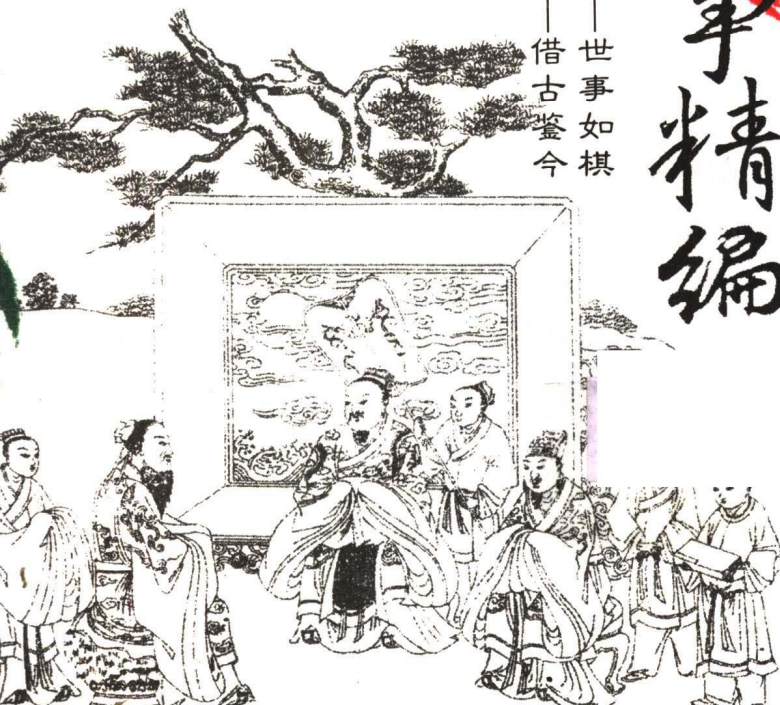 事精编
——世事如棋
——借古鉴今